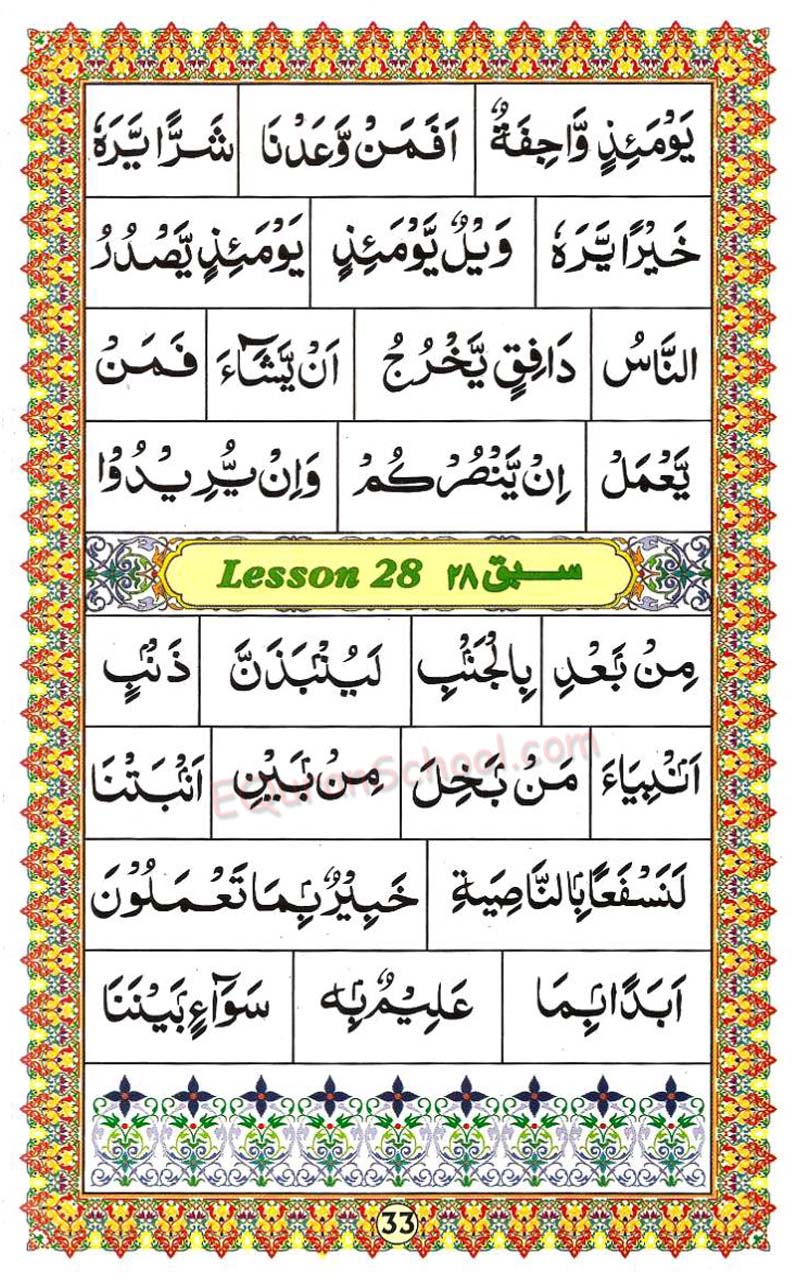 يَوْمَئِذٍ وَّاجِفَةٌ اَفَمَنْ وَّعَدْنَا شَرًّا يَّرَهٗ
خَيْرًا يَّرَهٗ وَيْلٌ يَّوْمَئِذٍ يَوْمَئِذٍ يَّصْدُرُ
النَّاسُ دَافِقٍ يَّخْرُجُ اَنْ يَّشَآءَ فَمَنْ
يَّعْمَلْ اِنْ يَّنْصُرْكُمْ وَاِنْ يُّرِيْدُوْا
Lesson 28 سبق ۲۸
مِنْۢ بَعْدِ بِالْجَنْۢبِ لَيُنْۢبَذَنَّ ذَنْۢبٍ
اَنْۢبِيَاءَ مَنْۢ بَخِلَ مِنْۢ بَيْنِ اَنْۢبَتْنَا
EQuranSchool.com
لَنَسْفَعًۢا بِالنَّاصِيَةِ خَبِيْرٌۢ بِمَا تَعْمَلُوْنَ
اَبَدًۢا بِمَا عَلِيْمٌۢ بِهٖ سَوَآءٍۢ بَيْنَنَا
33